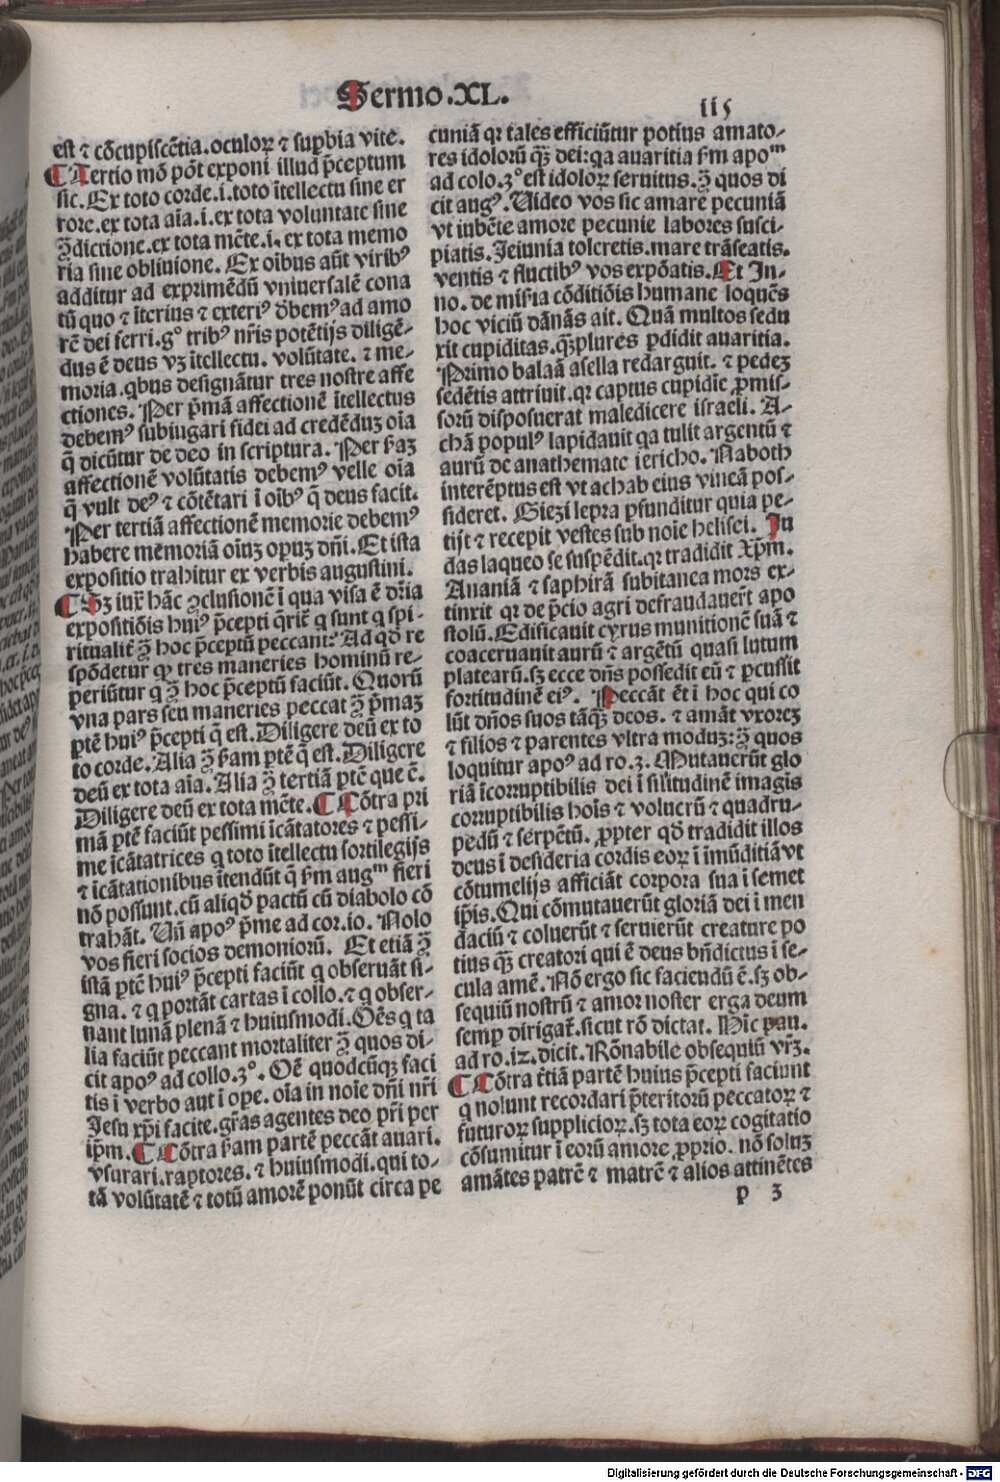 Sermo.XL.
115
est ⁊ cōcupiscētia.oculoꝝ ⁊ supbia vite.
¶ Tertio mō pōt exponi illud p̄ceptum
sic.Ex toto corde.i.toto ītellectu sine er
rore.ex tota aīa.i.ex tota voluntate sine
ꝯ̄dictione.ex tota mēte.i.ex tota memo
ria sine obliuione. Ex oībus aūt viribꝰ
additur ad exprimēdū vniuersalē cona
tū quo ⁊ īterius ⁊ exteriꝰ ðbemꝰ ad amo
rē dei ferri.gͦ tribꝰ nr̄is potētijs diligē-
dus ē deus vꝫ ītellectu. volūtate. ⁊ me-
moria.qbus designātur tres nostre affe
ctiones. Per pͥmā affectionē ītellectus
debemꝰ subiugari fidei ad credēduꝫ oīa
q̄ dicūtur de deo in scriptura. Per ẜaꝫ
affectionē volūtatis debemꝰ velle oīa
q̄ vult deꝰ ⁊ cōtētari ī oībꝰ q̄ deus facit.
Per tertiā affectionē memorie debemꝰ
habere memoriā oīuꝫ opuꝫ dn̄i.Et ista
expositio trahitur ex verbis augustini.
¶ Sꝫ iux̄ hāc ꝯclusionē ī qua visa ē dr̄ia
expositiōis huiꝰ p̄cepti qͥrit̄ q sunt q spi-
ritualit̄ ꝯ̄ hoc p̄ceptū peccant: Ad qð re
spōdetur ꝙ tres maneries hominū re-
periūtur q ꝯ̄ hoc p̄ceptū faciūt. Quorū
vna pars seu maneries peccat ꝯ̄ pͥmaꝫ
ꝑtē huiꝰ p̄cepti q̄ est.Diligere deū ex to
to corde.Alia ꝯ̄ ẜam ꝑtē q̄ est.Diligere
deū ex tota aīa.Alia ꝯ̄ tertiā ꝑtē que ē.
Diligere deū ex tota mēte.¶ Cōtra pri
mā ꝑtē faciūt pessimi īcātatores ⁊ pessi-
me īcātatrices q toto ītellectu sortilegijs
⁊ īcātationibus ītendūt q̄ ẜm augᵐ fieri
nō possunt.cū aliqð pactū cū diabolo cō
trahāt. Uñ apoꝰ pͥme ad cor.io. Nolo
vos fieri socios demoniorū. Et etiā ꝯ̄
istā ꝑtē huiꝰ p̄cepti faciūt q obseruāt si-
gna. ⁊ q portāt cartas ī collo.⁊ q obser-
uant lunā plenā ⁊ huiusmodi.Oēs q ta
lia faciūt peccant mortaliter ꝯ̄ quos di-
cit apoꝰ ad collo.3ͦ. Oē quodcūqꝫ faci
tis ī verbo aut ī ope. oīa in noīe dn̄i nr̄i
Jesu xp̄i facite.gr̄as agentes deo pr̄i per
ip̄m.¶ Cōtra ẜam partē peccāt auari.
vsurari.raptores.⁊ huiusmodi.qui to-
tā volūtatē ⁊ totū amorē ponūt circa pe
cuniā qꝛ tales efficiūtur potius amato-
res idoloꝝ qꝫ̄ dei:qa auaritia ẜm apoᵐ
ad colo.3ͦ est idoloꝝ seruitus.ꝯ̄ quos di
cit augꝰ. Uideo vos sic amare pecuniā
vt iubēte amore pecunie labores susci-
piatis.Jeiunia toleretis.mare trāseatis.
ventis ⁊ fluctibꝰ vos expōatis.Et In-
no. de miẜia cōditiōis humane loquēs
hoc viciū dānās ait. Quā multos sedu
xit cupiditas.qꝫplures ꝑdidit auaritia.
Primo balaā asella redarguit. ⁊ pedeꝫ
sedētis attriuit.qꝛ captus cupidīe ꝓmis-
sorū disposuerat maledicere israeli. A-
chā populꝰ lapidauit qa tulit argentū ⁊
aurū de anathemate iericho. Naboth
interēptus est vt achab eius vineā pos-
sideret. Giezi lepra ꝑfunditur quia pe-
tijt ⁊ recepit vestes sub noīe helisei. Ju
das laqueo se suspēdit.qꝛ tradidit Xp̄m.
Ananiā ⁊ saphirā subitanea mors ex-
tinxit qꝛ de p̄cio agri defraudauer̄t apo
stolū.Edificauit cyrus munitionē suā ⁊
coaceruauit aurū ⁊ argētū quasi lutum
platearū.sꝫ ecce dn̄s possedit eū ⁊ ꝑcussit
fortitudinē eiꝰ. Peccāt ēt ī hoc qui co
lūt dn̄os suos tāqꝫ̄ deos. ⁊ amāt vxoreꝫ
⁊ filios ⁊ parentes vltra moduꝫ:ꝯ̄ quos
loquitur apoꝰ ad ro.3. Mutauerūt glo
riā īcorruptibilis dei ī sil̄itudinē imagis̄
corruptibilis hoīs ⁊ volucrū ⁊ quadru-
pedū ⁊ serpētū. ꝓpter qð tradidit illos
deus ī desideria cordis eoꝝ ī imūditiā vt
cōtumelijs afficiāt corpora sua ī semet
ip̄is.Qui cōmutauerūt gloriā dei ī men
daciū ⁊ coluerūt ⁊ seruierūt creature po
tius qꝫ̄ creatori qui ē deus bn̄dictus ī se-
cula amē. Nō ergo sic faciendū ē.sꝫ ob-
sequiū nostrū ⁊ amor noster erga deum
semꝑ dirigat̄.sicut rō dictat. Hic pau.
ad ro.12.dicit. Rōnabile obsequiū vr̄ꝫ.
¶ Cōtra t̄tiā partē huius p̄cepti faciunt
q nolunt recordari p̄teritorū peccatoꝝ ⁊
futuroꝝ supplicioꝝ.sꝫ tota eoꝝ cogitatio
cōsumitur ī eorū amore ꝓprio. nō soluꝫ
amātes patrē ⁊ matrē ⁊ alios attinētes
p 3
Digitalisierung gefördert durch die Deutsche Forschungsgemeinschaft - DFG